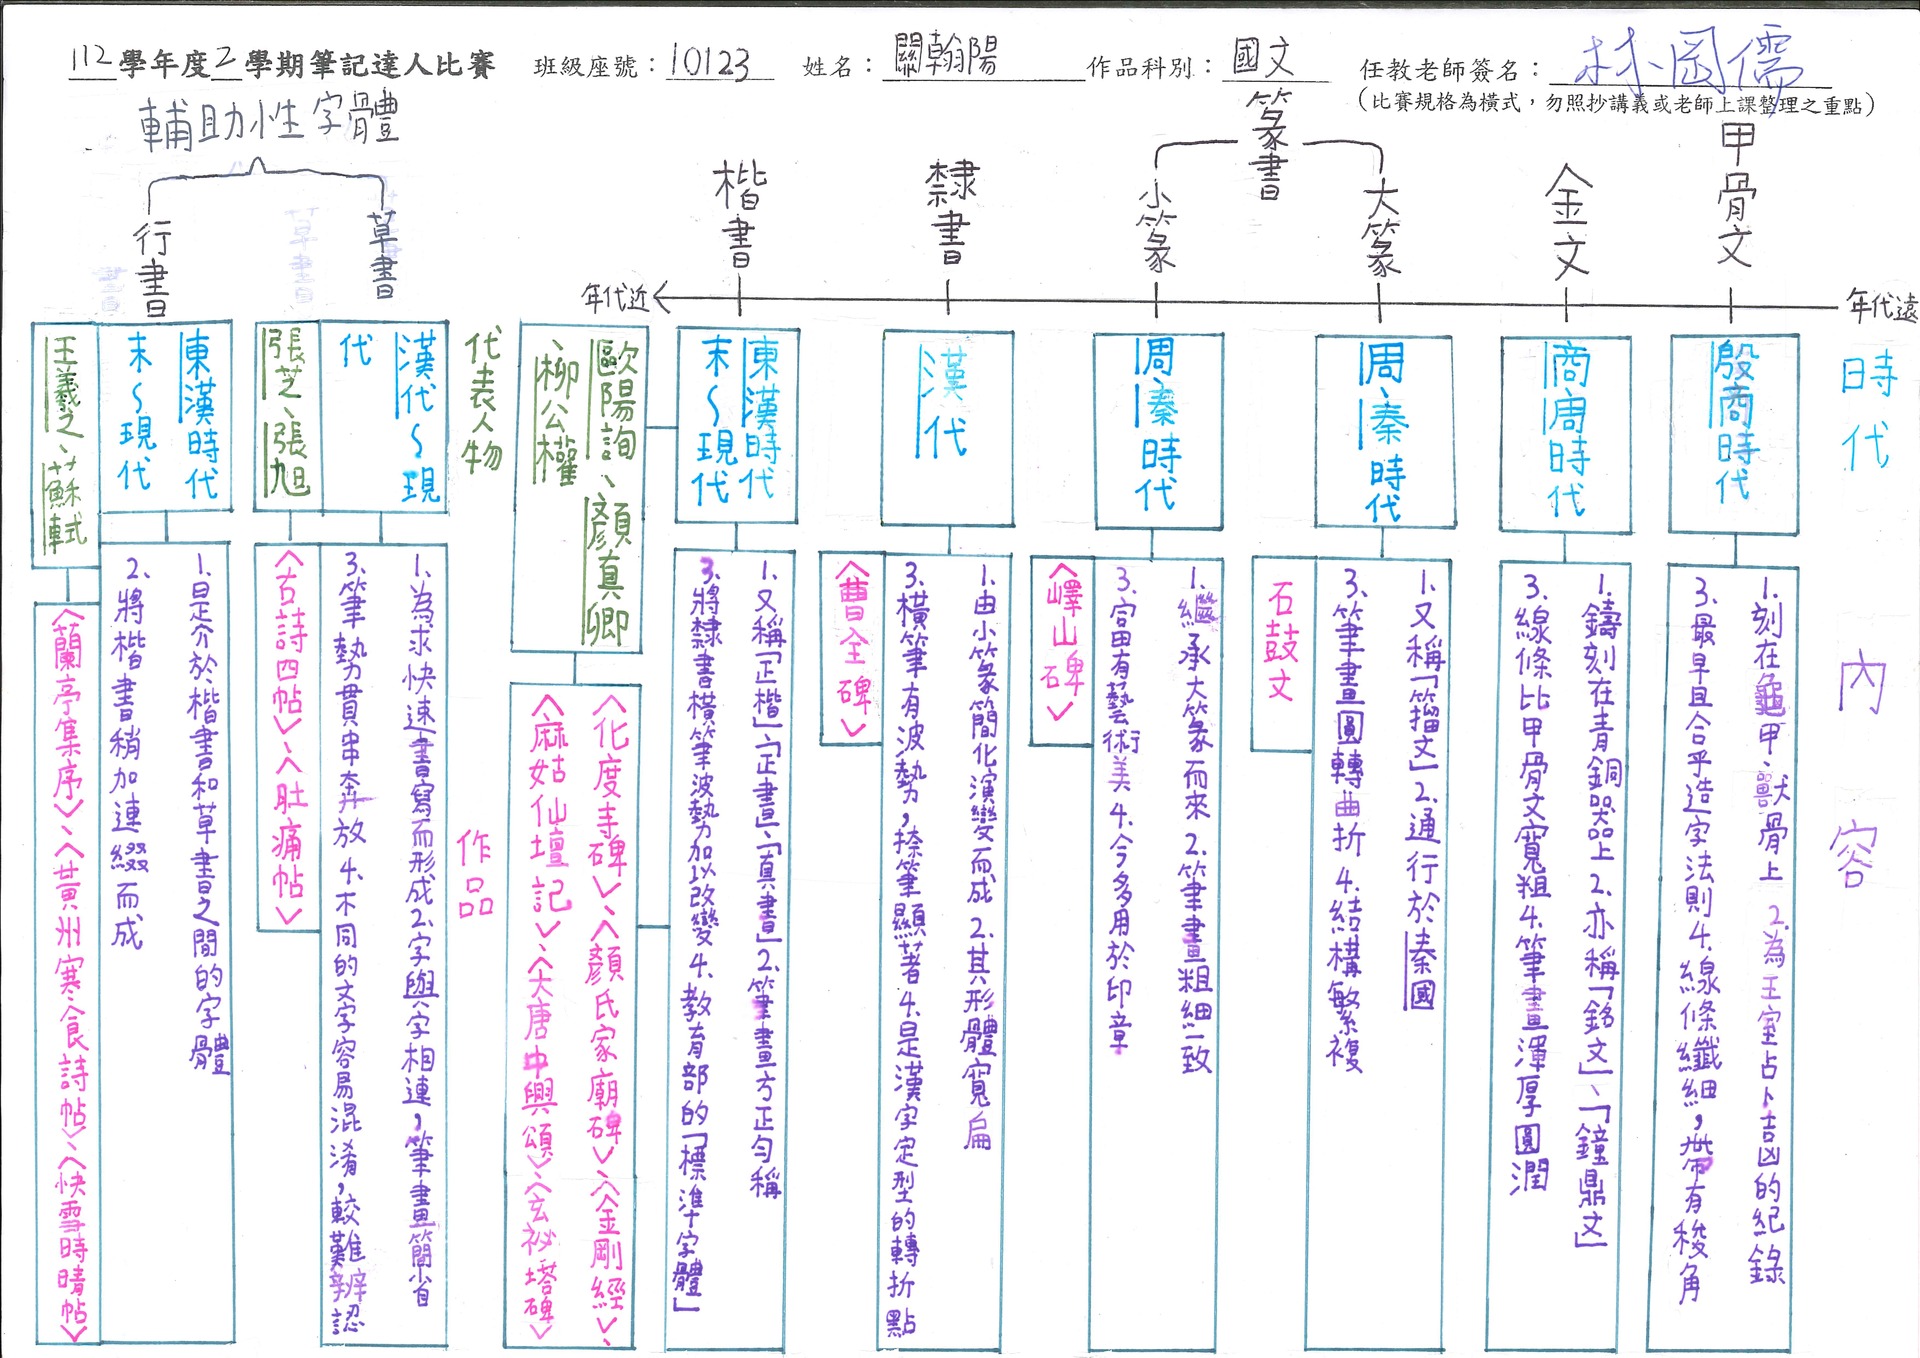 112學年度2學期筆記達人比賽 班級座號：10123 姓名：闕翰陽 作品科別：國文 任教老師簽名：林國儒
（比賽規格為橫式，勿照抄講義或老師上課整理之重點）
年代遠
年代近
時代
內容
甲骨文
殷商時代
1.刻在龜甲、獸骨上 2.為王室占卜吉凶的紀錄
3.最早且合乎造字法則 4.線條纖細，帶有稜角
金文
商周時代
1.鑄刻在青銅器上 2.亦稱「銘文」、「鐘鼎文」
3.線條比甲骨文寬粗 4.筆畫渾厚圓潤
篆書
大篆
周、秦時代
1.又稱「籀文」 2.通行於秦國
3.筆畫圓轉曲折 4.結構繁複
石鼓文
小篆
周、秦時代
1.繼承大篆而來 2.筆畫粗細一致
3.富有藝術美 4.今多用於印章
〈嶧山碑〉
隸書
漢代
1.由小篆簡化演變而成 2.其形體寬扁
3.橫筆有波勢，捺筆顯著 4.是漢字定型的轉折點
〈曹全碑〉
楷書
東漢時代
末～現代
1.又稱「正楷」、「正書」、「真書」 2.筆畫方正勻稱
3.將隸書橫筆波勢加以改變 4.教育部的「標準字體」
歐陽詢、顏真卿
、柳公權
〈化度寺碑〉、〈顏氏家廟碑〉、〈金剛經〉、
〈麻姑仙壇記〉、〈大唐中興頌〉、〈玄祕塔碑〉
代表人物
作品
輔助性字體
草書
漢代～現
代
1.為求快速書寫而形成 2.字與字相連，筆畫簡省
3.筆勢貫串奔放 4.不同的文字容易混淆，較難辨認
張芝、張旭
〈古詩四帖〉、〈肚痛帖〉
行書
東漢時代
末～現代
1.是介於楷書和草書之間的字體
2.將楷書稍加連綴而成
王羲之、蘇軾
〈蘭亭集序〉、〈黃州寒食詩帖〉、〈快雪時晴帖〉